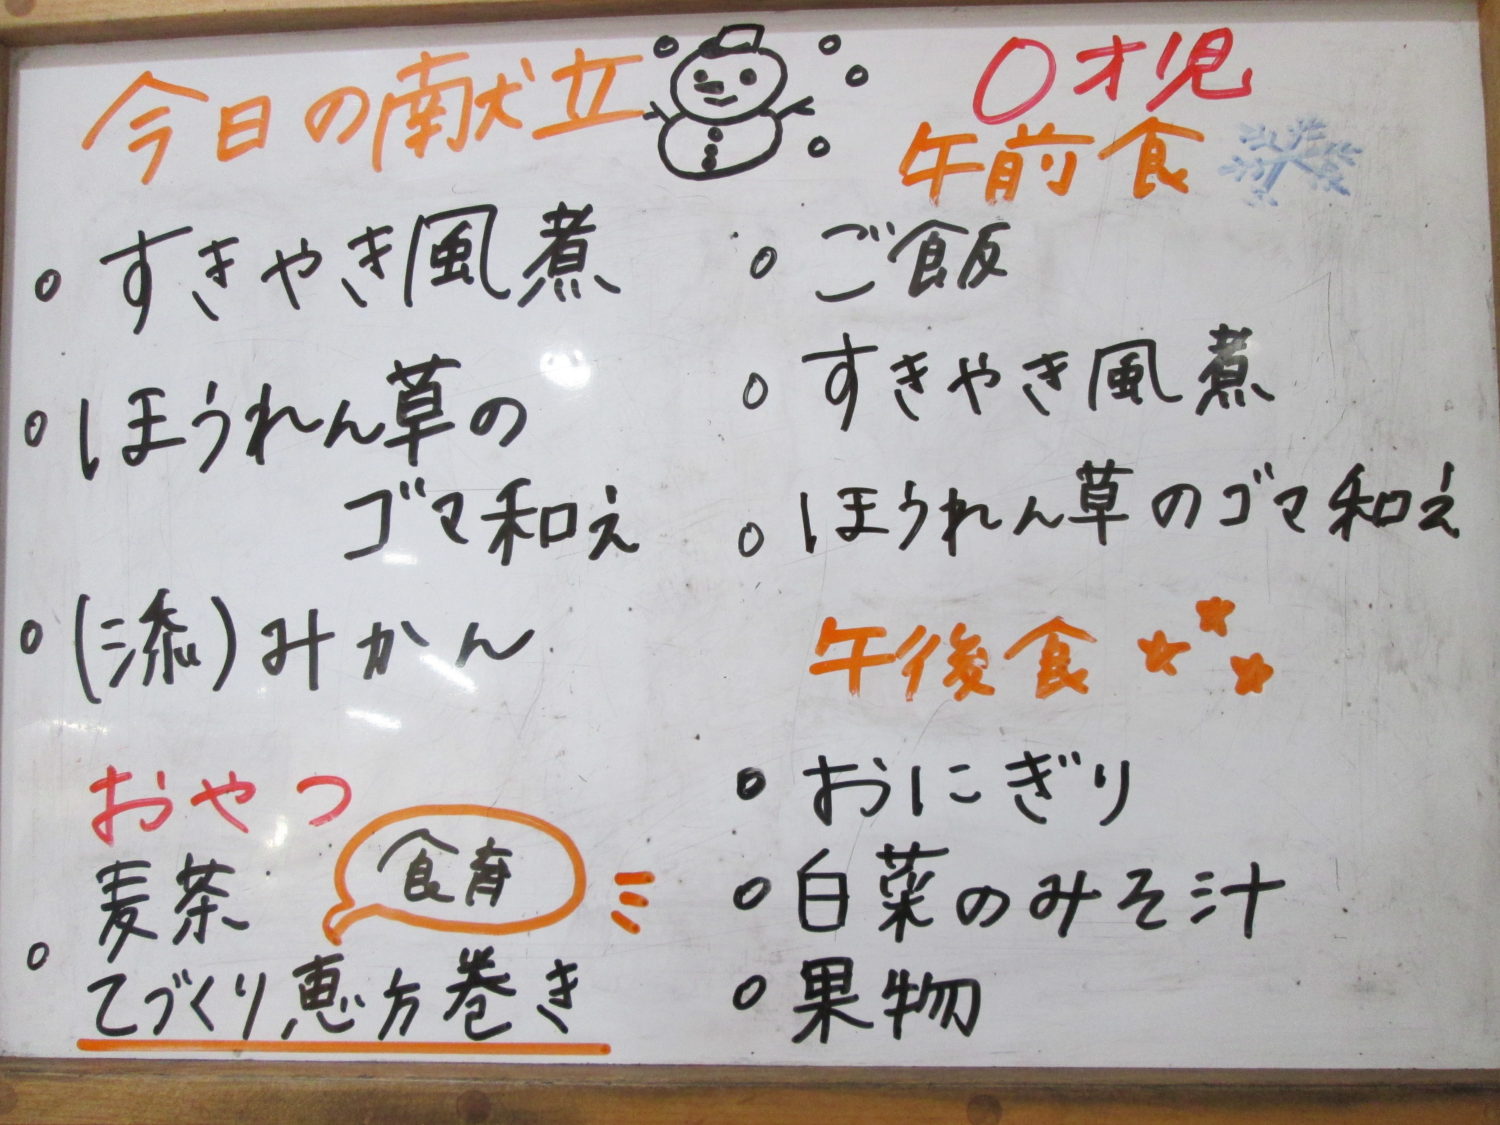 今日の献立
すきやき風煮
ほうれん草の
ゴマ和え
(添)みかん
おやつ
食育
麦茶
てづくり恵方巻き
0才児
午前食
ご飯
すきやき風煮
ほうれん草のゴマ和え
午後食
おにぎり
白菜のみそ汁
果物